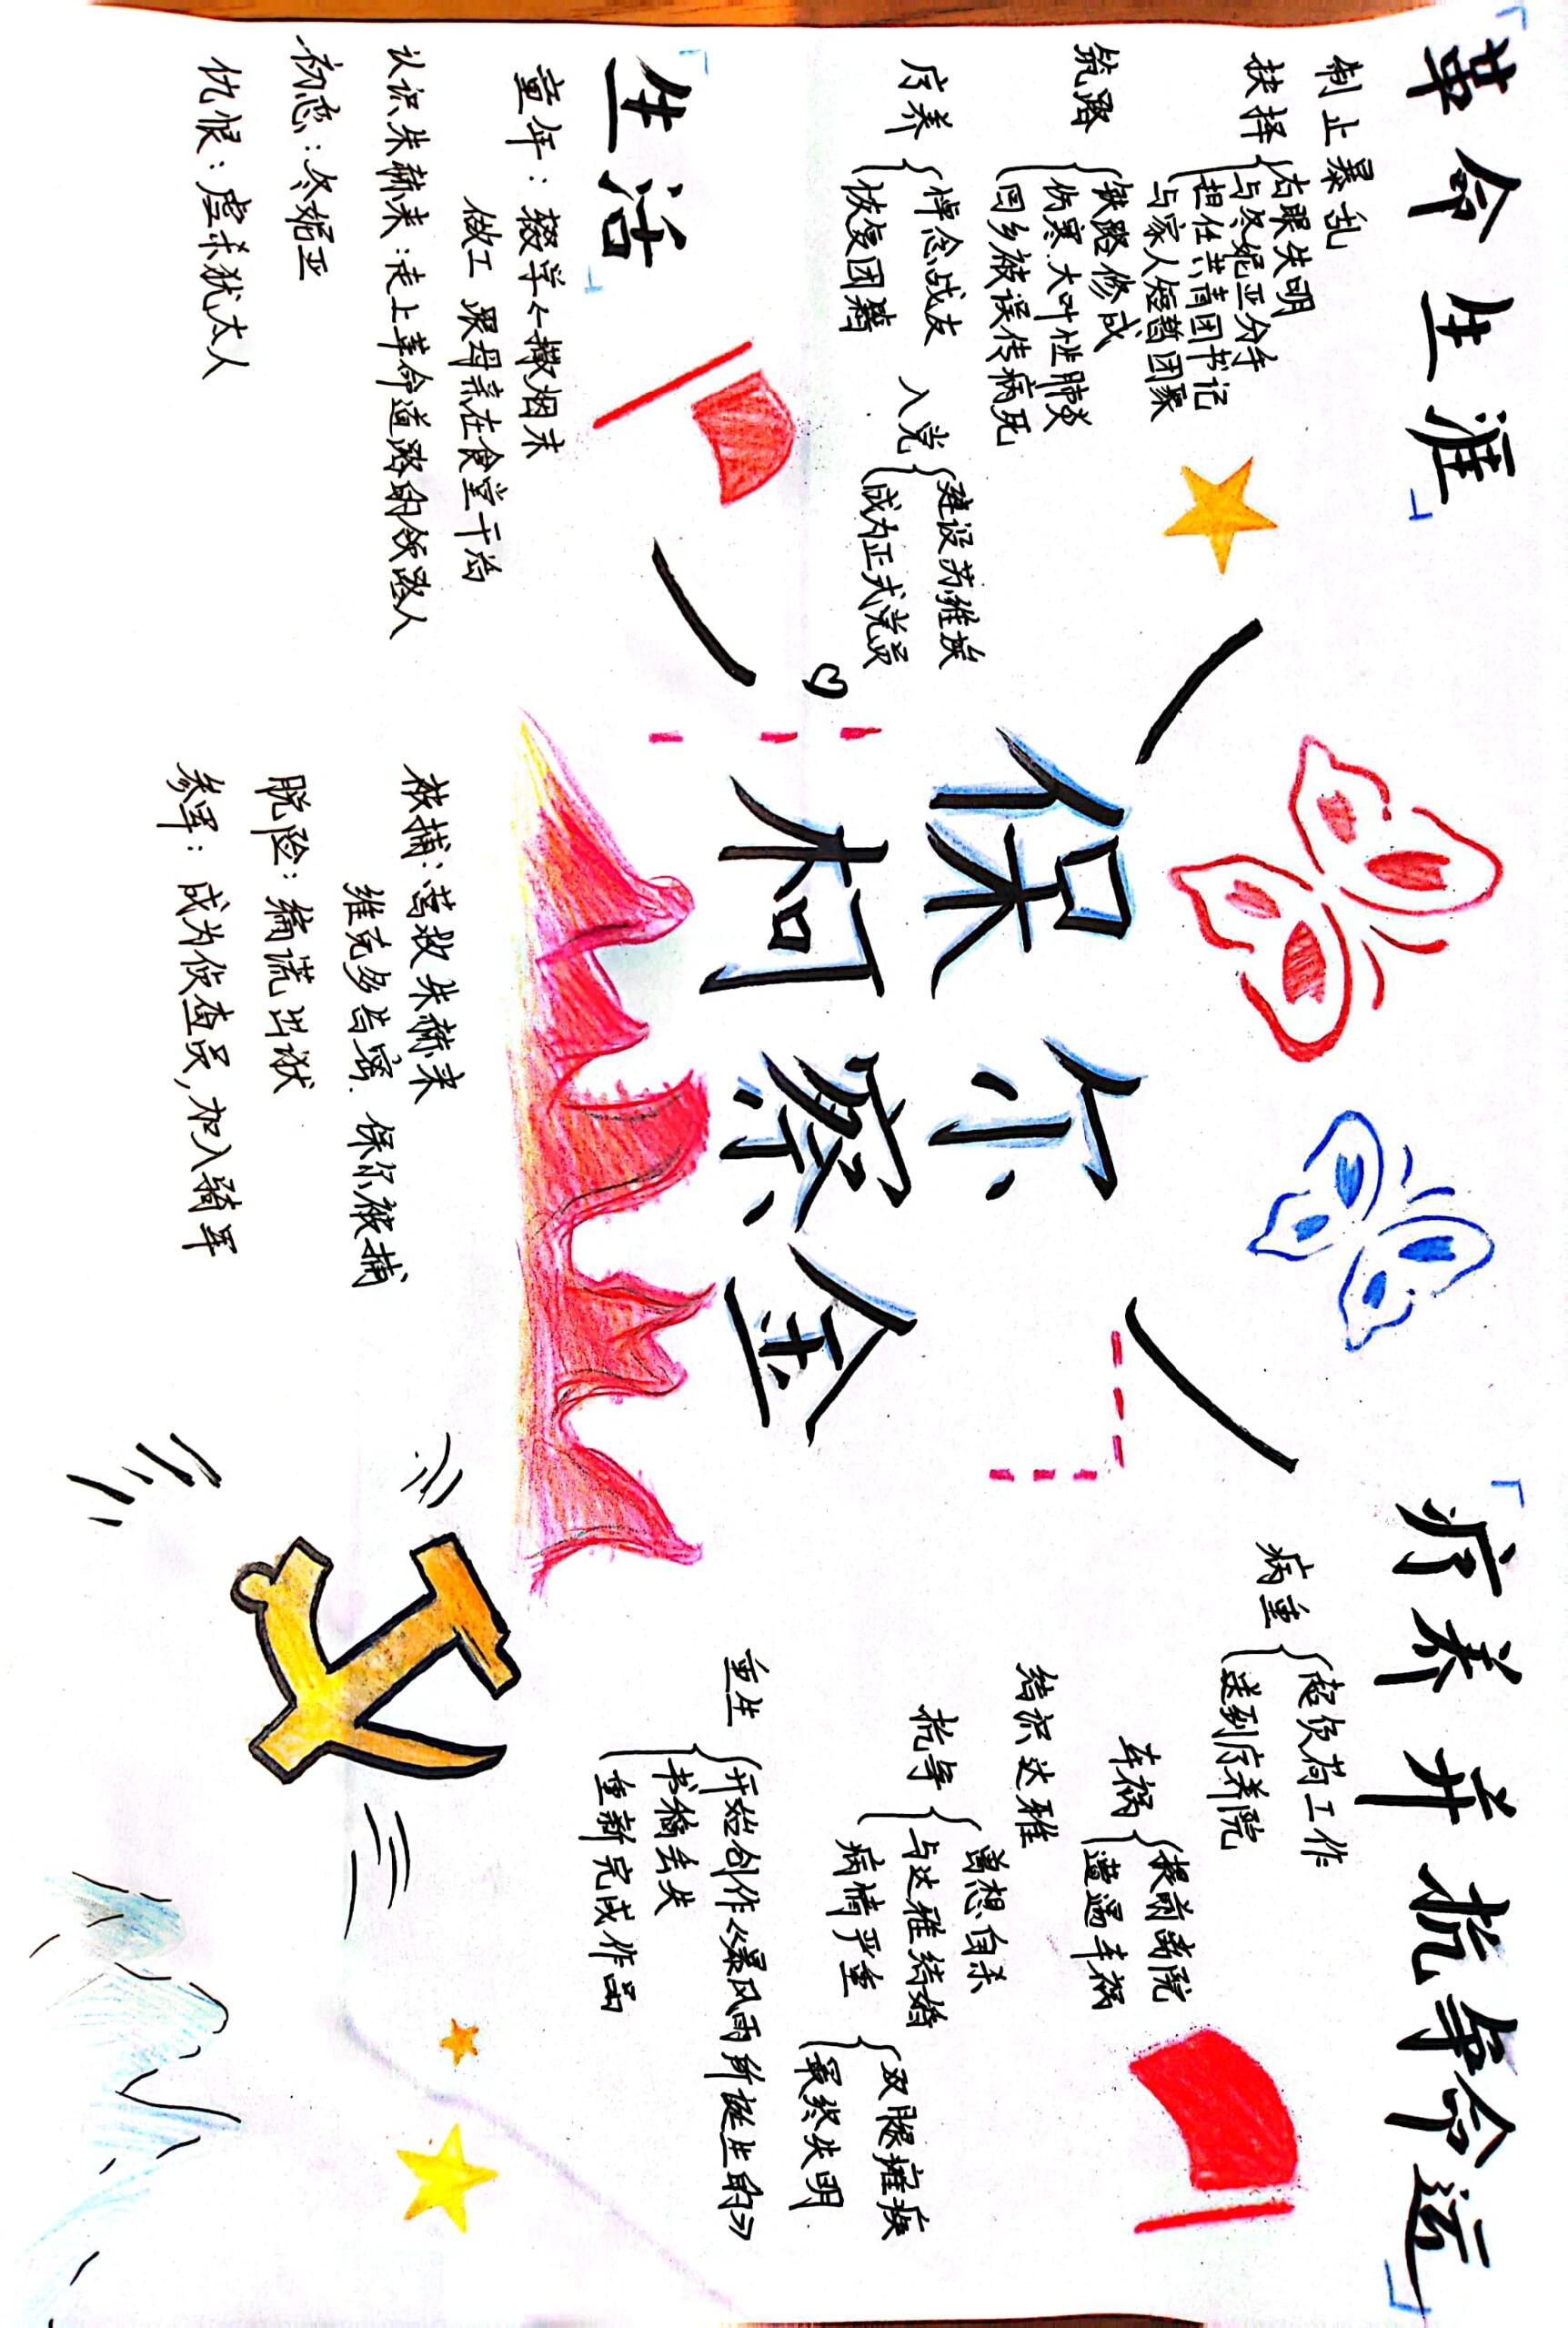 「革命生涯」
制止暴乱
抉择
右眼失明
与冬妮亚分手
担任共青团书记
与家人短暂团聚
筑路
铁路修成
伤寒.大叶性肺炎
回乡被误传病死
疗养
悼念战友
恢复团籍
入党
建设苏维埃
成为正式党员
「生活」
童年：辍学←撒烟末
做工 跟母亲在食堂干活
认识朱赫来：走上革命道路的领路人
初恋：冬妮亚
仇恨：虐杀犹太人
保尔
柯察金
被捕：营救朱赫来
维克多告密.保尔被捕
脱险：编谎出狱
参军：成为侦查员，加入骑军
「疗养并抗争命运」
病重
超负荷工作
送到疗养院
车祸
提前离院
遭遇车祸
结识达雅
抗争
曾想自杀
与达雅结婚
病情严重
双腿瘫痪
最终失明.
重生
开始创作《暴风雨所诞生的》
书稿丢失
重新完成作品